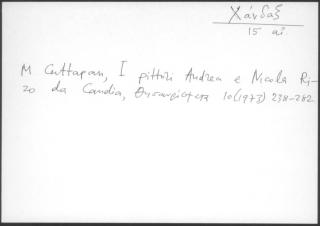 Χάνδαξ
15 αι.
M Cattapan, I pittori Andrea e Nicola Ri-
zo da Candia, Θησαυρίσματα 10 (1973) 238-282